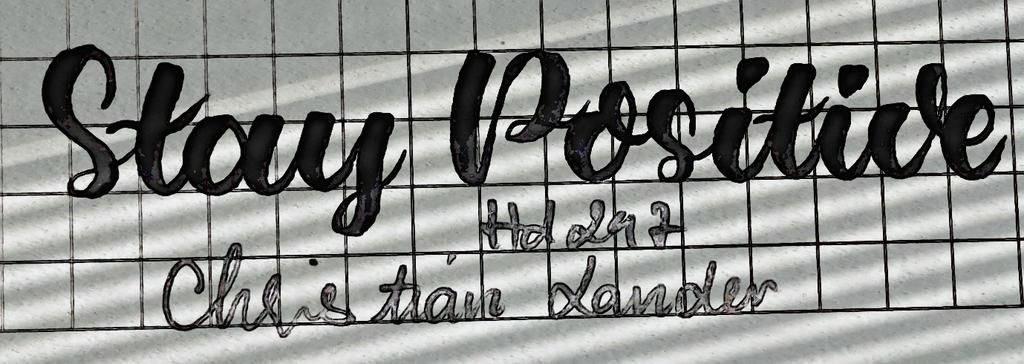 Stay Positive
Hd 247
Christian Lander